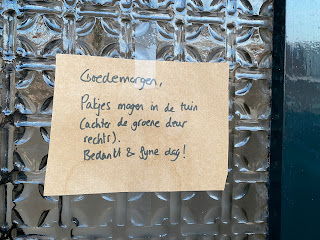 Goedemorgen,
Pakjes mogen in de tuin
(achter de groene deur
rechts).
Bedankt & fijne dag!